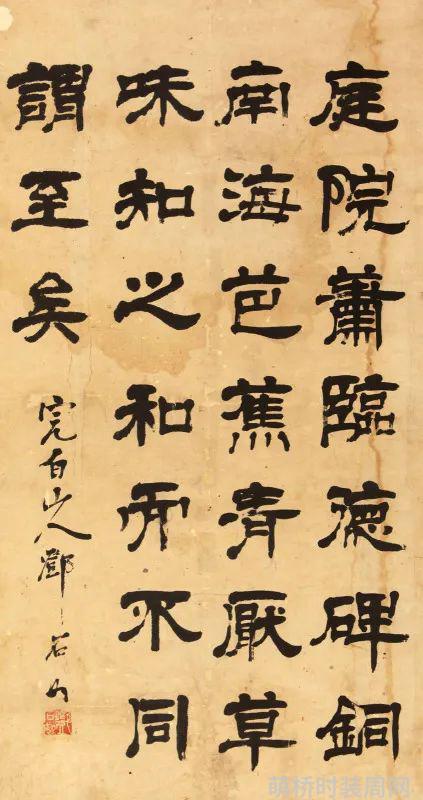 庭院蕭臨德碑銅
南海芭蕉清厭草
味知之和而不同
謂至矣
完白山人鄧石如
萌桥时装周网